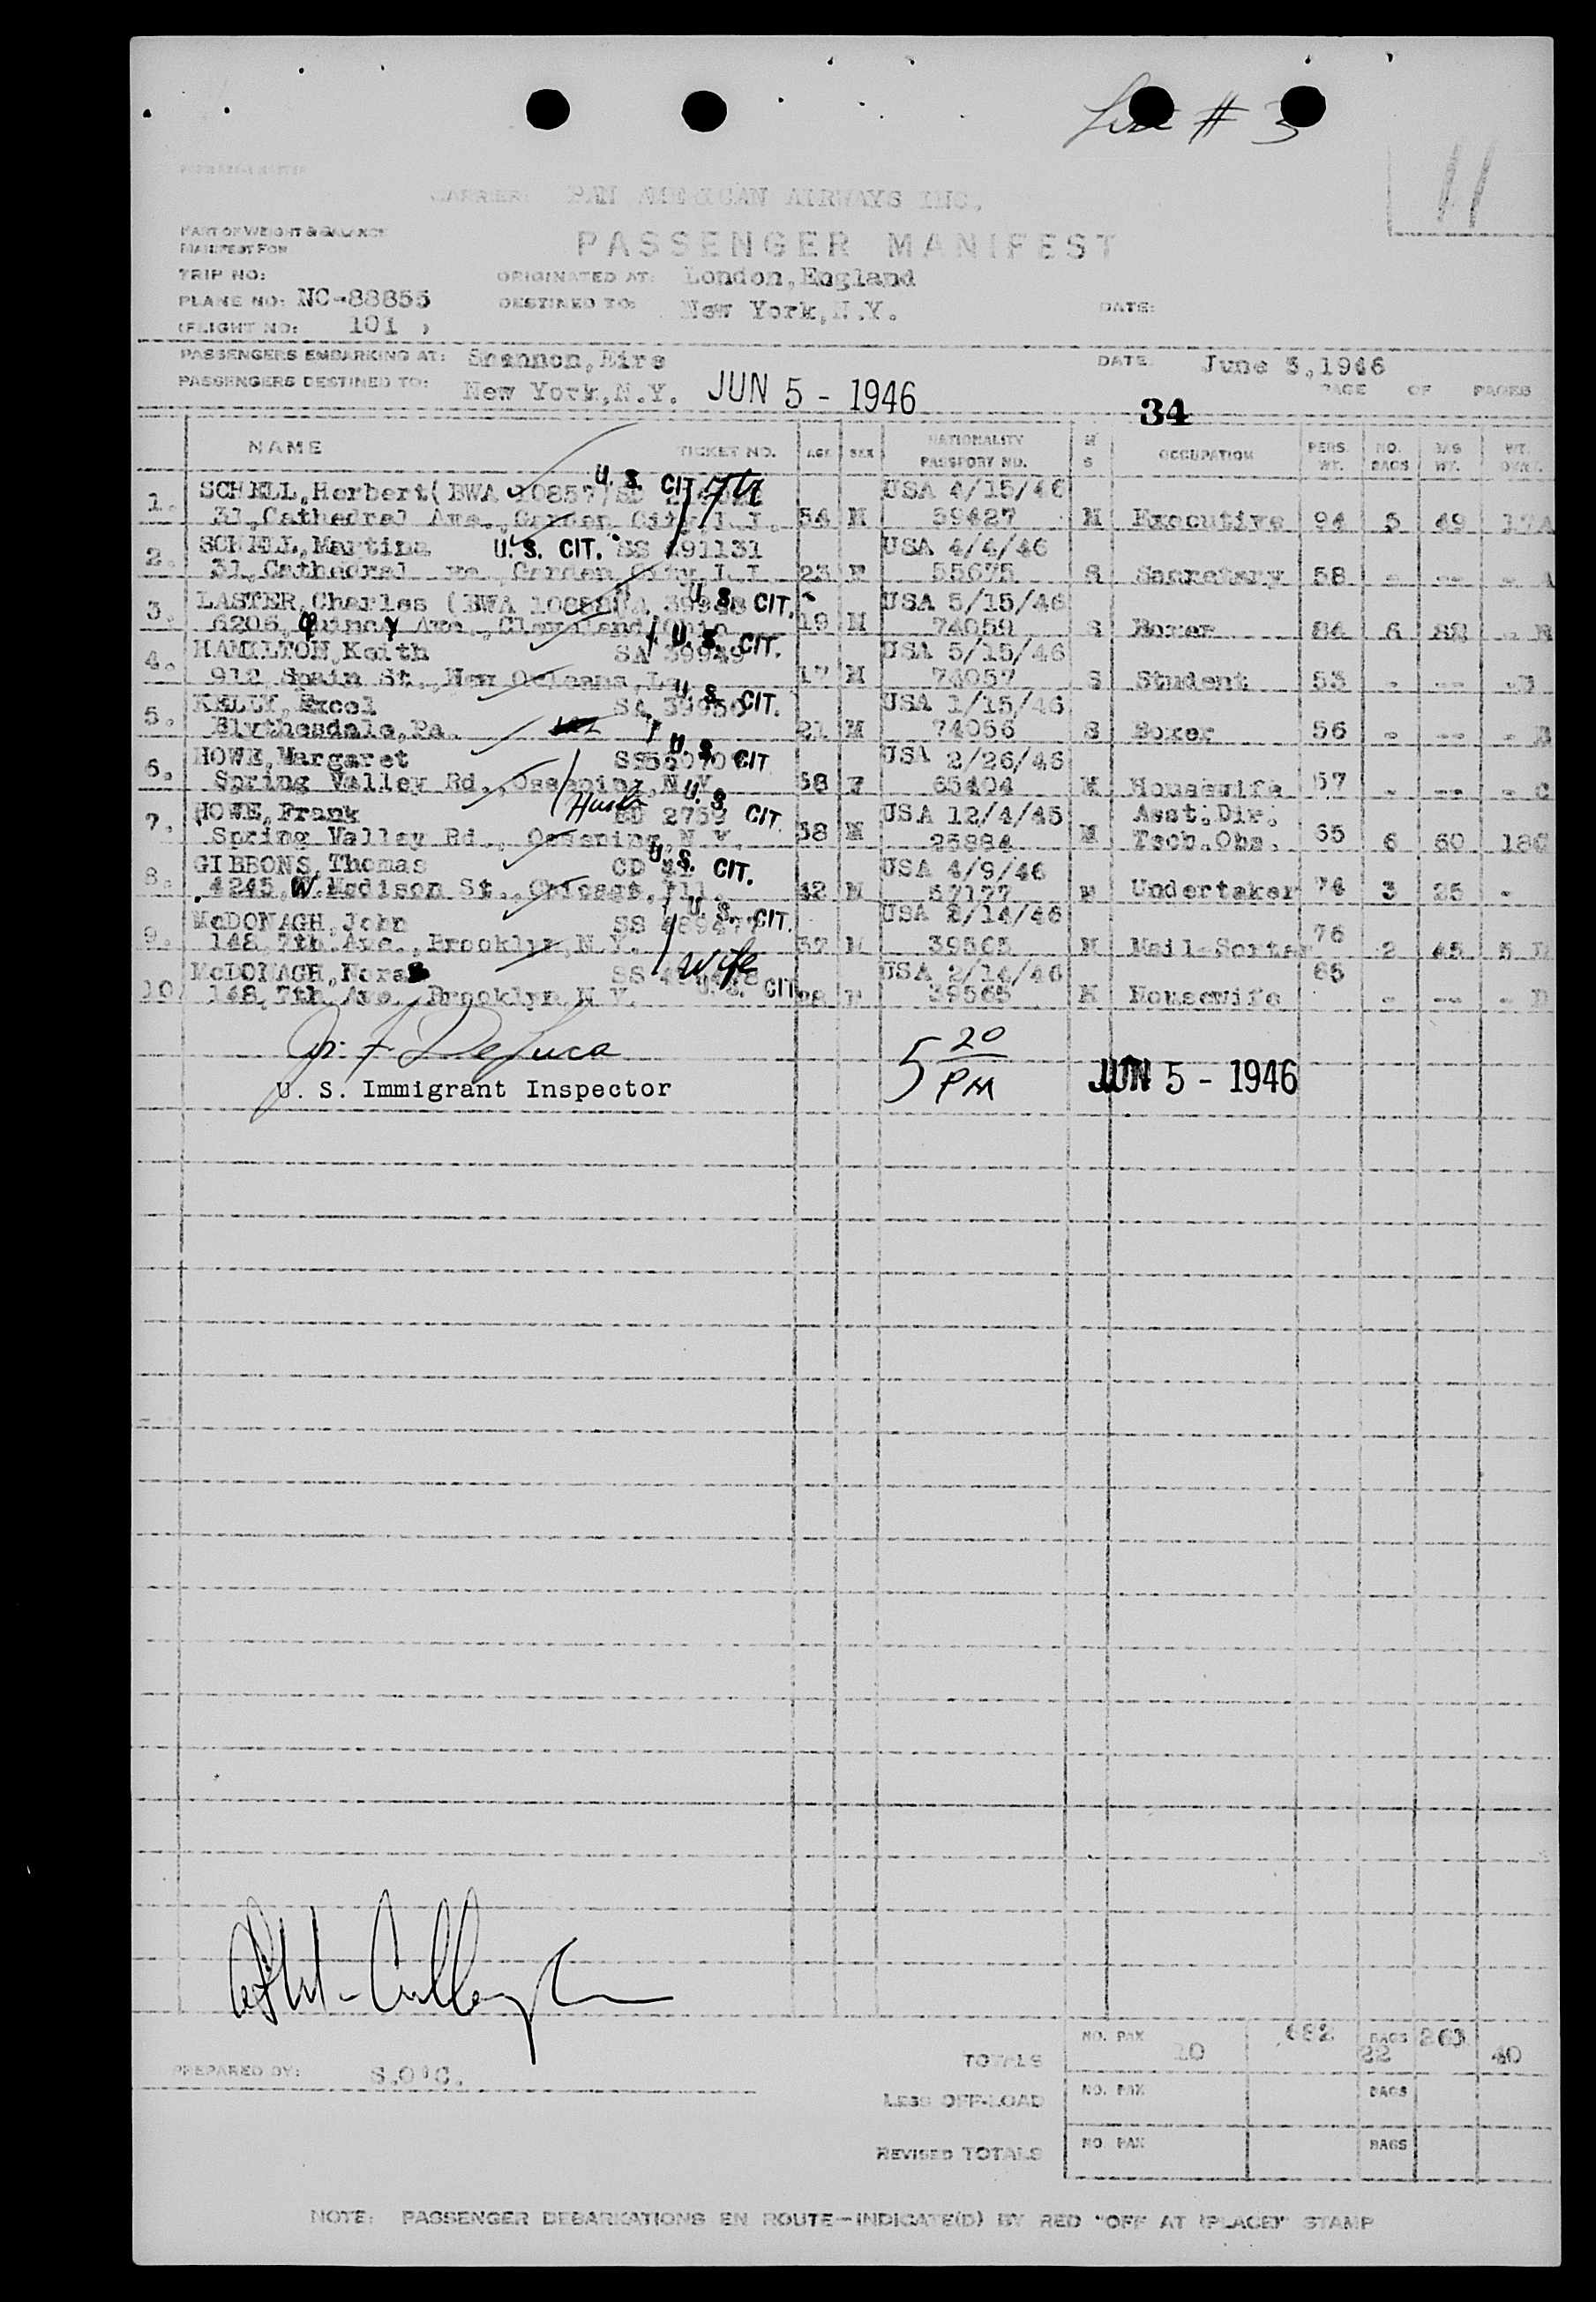 # 3
11
CARRIER: PAN AMERICAN AIRWAYS INC.
PART OF WEIGHT & BALANCE
MANIFEST FOR
PASSENGER MANIFEST
TRIP NO:
ORIGINATED AT: London, England
PLANE NO: NC-88855
DESTINED TO: New York, N.Y.
DATE:
(FLIGHT NO: 101 )
PASSENGERS EMBARKING AT: Shannon, Eire
DATE June 5, 1946
PASSENGERS DESTINED TO: New York, N.Y. JUN 5 - 1946
PAGE OF PAGES
34
NAME TICKET NO. AGE SEX NATIONALITY PASSPORT NO. M S OCCUPATION PERS. WT. NO. BAGS BAG WT. WT. OVRT.
1. SCHELL, Herbert (BWA 10857) U. S. CIT USA 4/15/46
31, Cathedral Ave., Garden City, L.I. 54 M 39427 M Executive 94 5 49 17A
2. SCHELL, Martina U. S. CIT. SS 491131 USA 4/4/46
31, Cathedral Ave., Garden City, L.I. 23 F 55675 S Secretary 58 - -- - A
3. LASTER, Charles (BWA 10858) SA 39948 U. S. CIT. USA 5/15/46
6206, Quincy Ave., Cleveland, Ohio 19 M 74059 S Boxer 84 6 - B
4. HAMILTON, Keith SA 39949 U. S. CIT. USA 5/15/46
912, Spain St., New Orleans, La. 17 M 74057 S Student 53 - -- - B
5. KELLY, Excel SA 39950 U. S. CIT. USA 1/15/46
Blythesdale, Pa. 21 M 74056 S Boxer 56 - -- - B
6. HOWE, Margaret U. S. CIT USA 2/26/46
Spring Valley Rd., Ossening, N.Y. 38 F 65404 M Housewife 57 - -- - C
7. HOWE, Frank Husb 2759 U. S. CIT USA 12/4/45 Asst. Div.
Spring Valley Rd., Ossening, N.Y. 38 M 25884 M Tech. Obs. 65 6 60 18C
8. GIBBONS, Thomas CD U. S. CIT. USA 4/9/46
4245, W. Madison St., Chicago, Ill. 42 M 57177 M Undertaker 74 3 25 -
9. McDONAGH, John SS 489477 U. S. CIT. USA 2/14/46
148, 7th Ave., Brooklyn, N.Y. 37 M 39565 M Mail-Sorter 76 2 45 5 D
10. McDONAGH, Nora SS wife U. S. CIT. USA 2/14/46
148, 7th Ave., Brooklyn, N.Y. 28 F 39565 M Housewife 65 - -- - D
DeLuca
5 20 PM JUN 5 - 1946
U. S. Immigrant Inspector
TOTALS NO. PAX 10 682 BAGS 22 263 40
PREPARED BY: S.O'C.
LESS OFF-LOAD NO. PAX BAGS
REVISED TOTALS NO. PAX BAGS
NOTE: PASSENGER DEBARKATIONS EN ROUTE—INDICATE(D) BY RED "OFF AT (PLACE)" STAMP